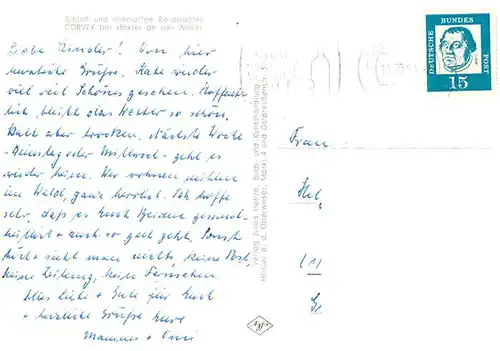 Schloß und ehemalige Reichsabtei
CORVEY bei Höxter an der Weser
Liebe Kinder! Von hier
herzliche Grüße. Habe wieder
viel viel Schönes gesehen. Hoffent-
lich bleibt das Wetter so schön.
Kalt aber trocken. Nächste Woche
Dienstag oder Mittwoch geht es
wieder heim. Wir wohnen mitten
im Wald, ganz herrlich. Ich hoffe
sehr, daß es Euch Beiden gesund-
heitlich + auch so gut geht. Sonst
hört + sieht man nichts, keine Post,
keine Zeitung, kein Fernsehen.
Alles Liebe + Gute für Euch
+ herzliche Grüße Eure
Mammi + Omi
Verlag Julius Henze, Buch- und Kunsthandlung
Höxter a. d. Oberweser, Markt 4 und Ostpreußenstr. 5
DEUTSCHE BUNDES POST
15
Frau